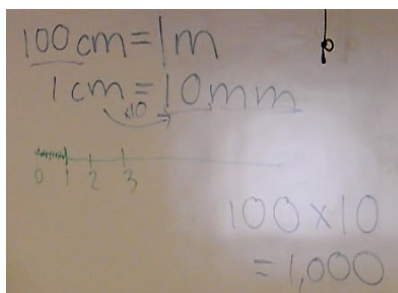 100cm=1m
1cm=10mm
x10
0 1 2 3
100x10
=1,000